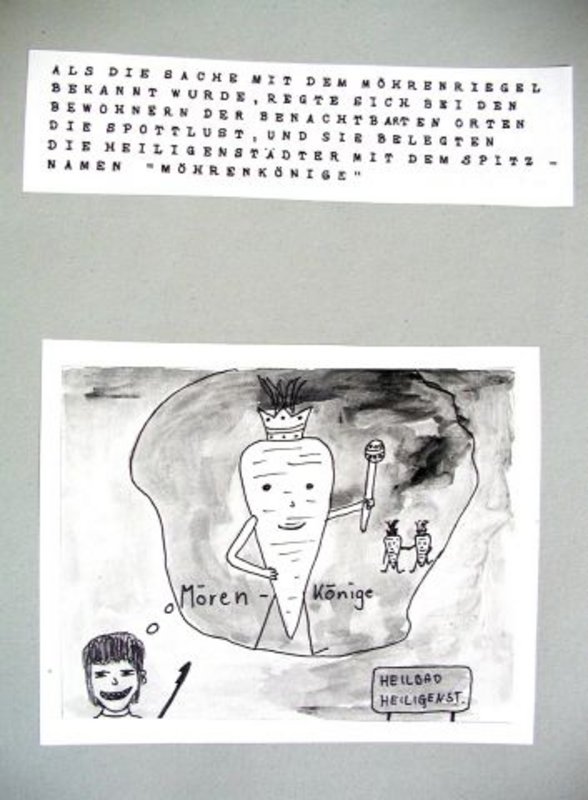 ALS DIE SACHE MIT DEM MÖHRENRIEGEL
BEKANNT WURDE, REGTE SICH BEI DEN
BEWOHNERN DER BENACHTBARTEN ORTEN
DIE SPOTTLUST, UND SIE BELEGTEN
DIE HEILIGENSTÄDTER MIT DEM SPITZ -
NAMEN "MÖHRENKÖNIGE"
Mören - Könige
HEILBAD
HEILIGENST.